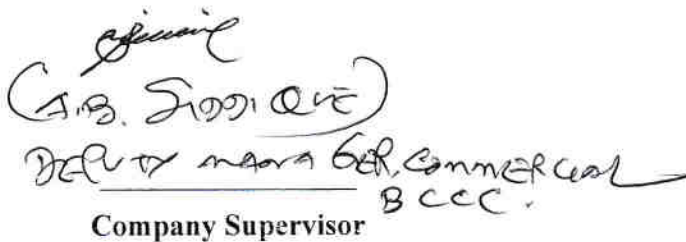 (A.B. SIDDIQUE)
DEPUTY MANAGER, COMMERCIAL
BCCC.
Company Supervisor